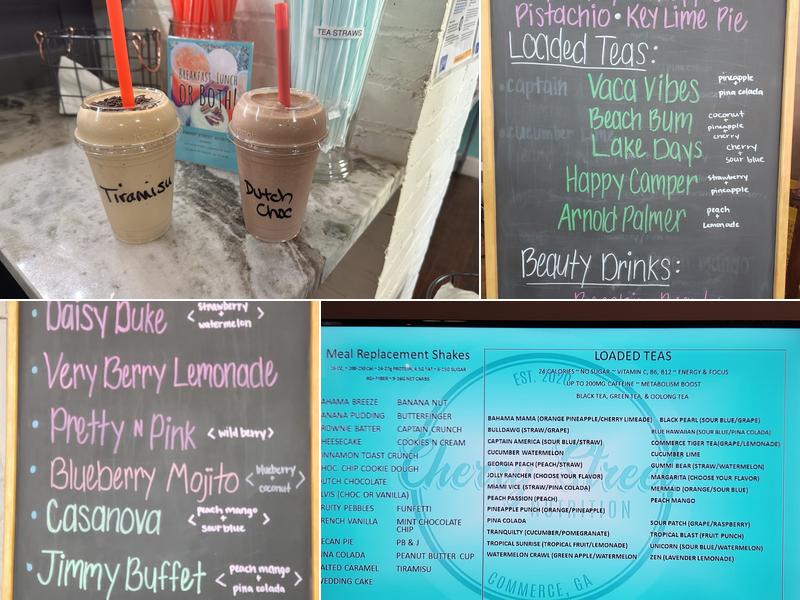 TEA STRAWS
BREAKFAST, LUNCH
OR BOTH!
Tiramisu
Dutch
Choc
Pistachio • Key Lime Pie
Loaded Teas:
Vaca Vibes
pineapple
+
pina colada
Beach Bum
coconut
+
pineapple
+
cherry
Lake Days
cherry
+
sour blue
Happy Camper
strawberry
+
pineapple
Arnold Palmer
peach
+
Lemonade
Beauty Drinks:
• Daisy Duke < strawberry + watermelon >
• Very Berry Lemonade
• Pretty N Pink < wild berry >
• Blueberry Mojito < blueberry + coconut >
• Casanova < peach mango + sour blue >
• Jimmy Buffet < peach mango + pina colada >
Meal Replacement Shakes
AHAMA BREEZE
ANANA PUDDING
ROWNIE BATTER
HEESECAKE
INNAMON TOAST CRUNCH
HOC. CHIP COOKIE DOUGH
UTCH CHOCOLATE
LVIS (CHOC OR VANILLA)
RUITY PEBBLES
RENCH VANILLA
ECAN PIE
INA COLADA
ALTED CARAMEL
EDDING CAKE
BANANA NUT
BUTTERFINGER
CAPTAIN CRUNCH
COOKIES N CREAM
FUNFETTI
MINT CHOCOLATE
CHIP
PB & J
PEANUT BUTTER CUP
TIRAMISU
LOADED TEAS
EST. 2020
24 CALORIES ~ NO SUGAR ~ VITAMIN C, B6, B12 ~ ENERGY & FOCUS
UP TO 200MG CAFFEINE ~ METABOLISM BOOST
BLACK TEA, GREEN TEA, & OOLONG TEA
BAHAMA MAMA (ORANGE PINEAPPLE/CHERRY LIMEADE)
BULLDAWG (STRAW/GRAPE)
CAPTAIN AMERICA (SOUR BLUE/STRAW)
CUCUMBER WATERMELON
GEORGIA PEACH (PEACH/STRAW)
JOLLY RANCHER (CHOOSE YOUR FLAVOR)
MIAMI VICE (STRAW/PINA COLADA)
PEACH PASSION (PEACH)
PINEAPPLE PUNCH (ORANGE/PINEAPPLE)
PINA COLADA
TRANQUILTY (CUCUMBER/POMEGRANATE)
TROPICAL SUNRISE (TROPICAL FRUIT/LEMONADE)
WATERMELON CRAWL (GREEN APPLE/WATERMELON
BLACK PEARL (SOUR BLUE/GRAPE)
BLUE HAWAIIAN (SOUR BLUE/PINA COLADA)
COMMERCE TIGER TEA(GRAPE/LEMONADE)
CUCUMBER LIME
GUMMI BEAR (STRAW/WATERMELON)
MARGARITA (CHOOSE YOUR FLAVOR)
MERMAID (ORANGE/SOUR BLUE)
PEACH MANGO
SOUR PATCH (GRAPE/RASPBERRY)
TROPICAL BLAST (FRUIT PUNCH)
UNICORN (SOUR BLUE/WATERMELON)
ZEN (LAVENDER LEMONADE)
Cherry Street
NUTRITION
COMMERCE, GA